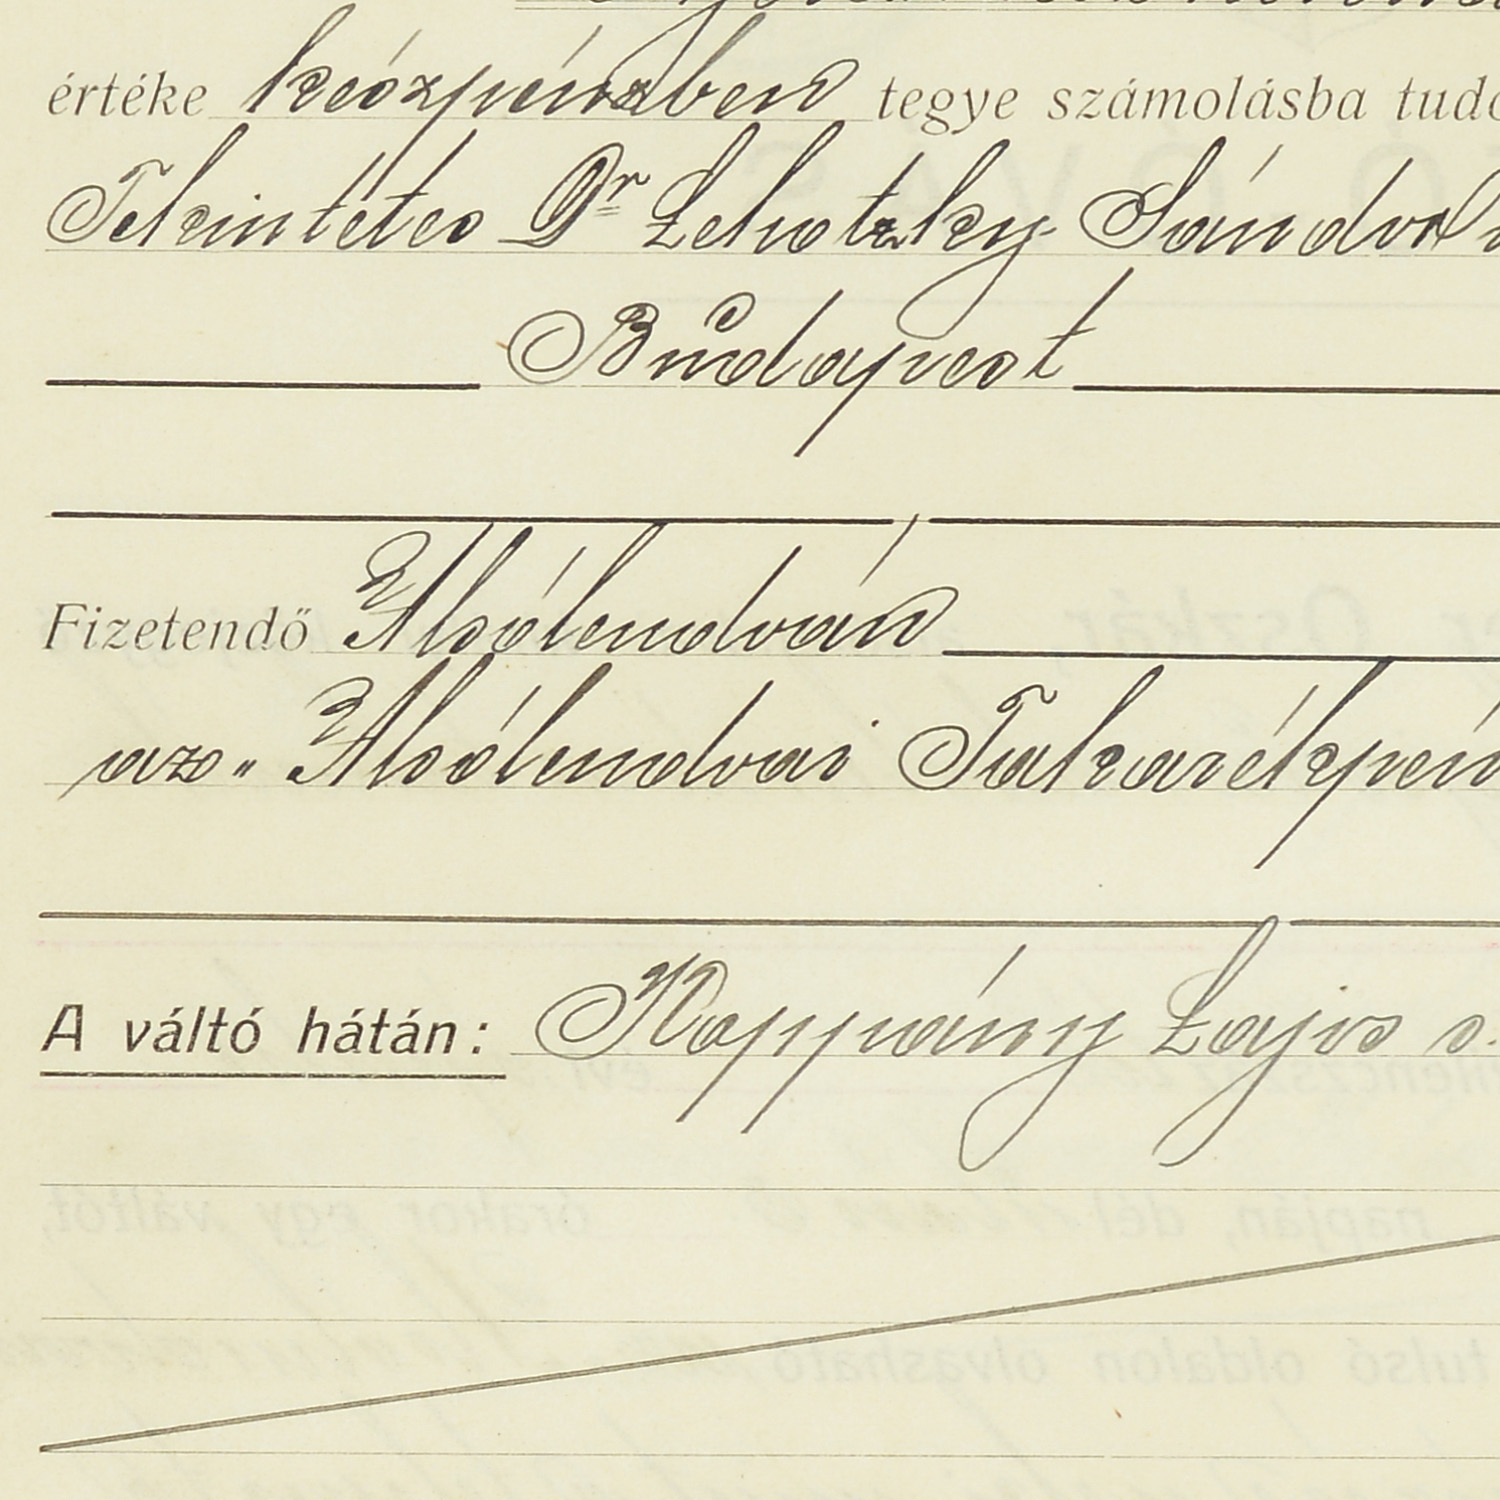 értéke készpénzben tegye számolásba
Tekintetes Dr Lehotzky Sándor
Budapest
Fizetendő Alsólendván
az „ Alsólendvai Takarékpén
A váltó hátán: Koppány Lajos s.